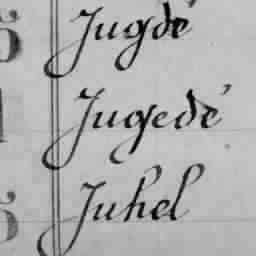 Jugdé
Jugedé
Juhel